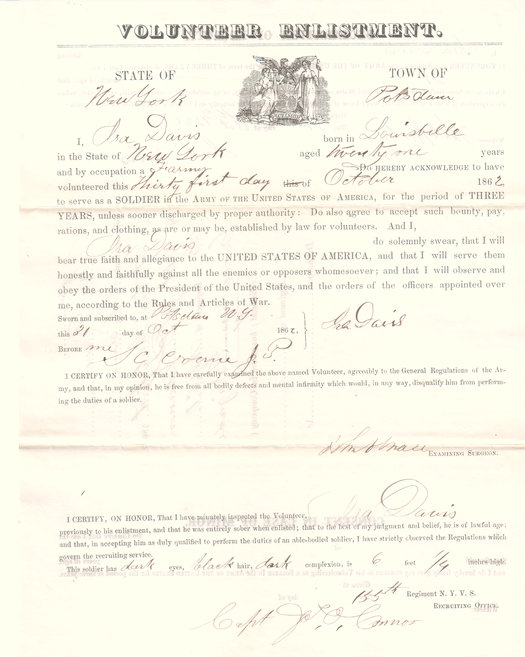 VOLUNTEER ENLISTMENT.
STATE OF TOWN OF
New York Potsdam
I, Ira Davis born in Louisville
in the State of New York aged twenty one years
and by occupation a Farmer Do HEREBY ACKNOWLEDGE to have
volunteered this thirty first day this of October 1862,
to serve as a SOLDIER in the ARMY OF THE UNITED STATES OF AMERICA, for the period of THREE
YEARS, unless sooner discharged by proper authority: Do also agree to accept such bounty, pay,
rations, and clothing, as are or may be, established by law for volunteers. And I,
Ira Davis do solemnly swear, that I will
bear true faith and allegiance to the UNITED STATES OF AMERICA, and that I will serve them
honestly and faithfully against all the enemies or opposers whomsoever; and that I will observe and
obey the orders of the President of the United States, and the orders of the officers appointed over
me, according to the Rules and Articles of War.
Sworn and subscribed to, at Potsdam N.Y.
this 31 day of Oct 1862, Ira Davis
BEFORE me J. P.
I CERTIFY ON HONOR, That I have carefully examined the above named Volunteer, agreeably to the General Regulations of the Ar-
my, and that, in my opinion, he is free from all bodily defects and mental infirmity which would, in any way, disqualify him from perform-
ing the duties of a soldier.
EXAMINING SURGEON.
Ira Davis
I CERTIFY, ON HONOR, That I have minutely inspected the Volunteer,
previously to his enlistment, and that he was entirely sober when enlisted; that to the best of my judgment and belief, he is of lawful age;
and that, in accepting him as duly qualified to perform the duties of an able-bodied soldier, I have strictly observed the Regulations which
govern the recruiting service.
This soldier has dark eyes, black hair, dark complexion, is 6 feet 1/4 inches high.
155th Regiment N. Y. V. S.
RECRUITING OFFICE.
Capt J. O. Connor